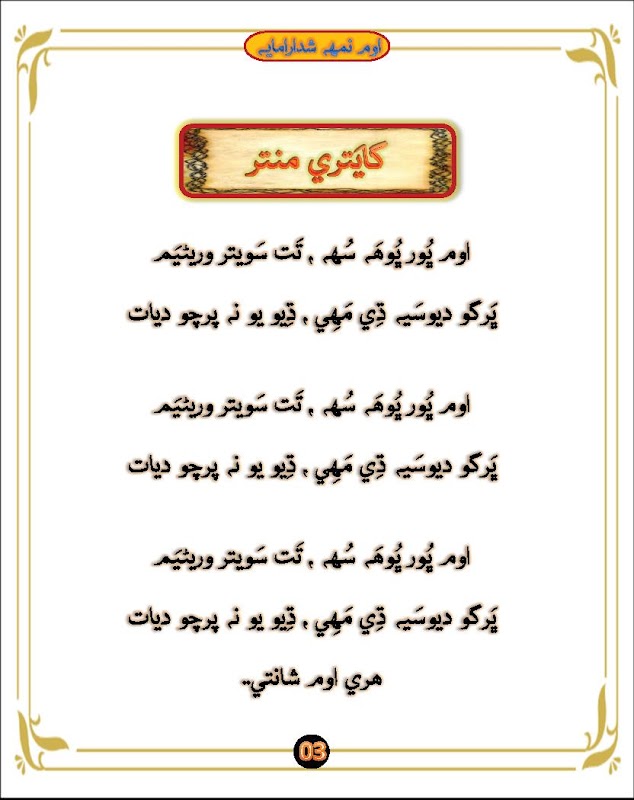 اوم نمھ شدارامايہ
گايَتري منتر
اوم ڀُور ڀُوھَہ سُھہ ۾ تَت سَويتر وريڻيَم
ڀَرگو ديوسَيہ ڌِي مَهِي ۾ ڌِيو يو نہ پرچو ديات
اوم ڀُور ڀُوھَہ سُھہ ۾ تَت سَويتر وريڻيَم
ڀَرگو ديوسَيہ ڌِي مَهِي ۾ ڌِيو يو نہ پرچو ديات
اوم ڀُور ڀُوھَہ سُھہ ۾ تَت سَويتر وريڻيَم
ڀَرگو ديوسَيہ ڌِي مَهِي ۾ ڌِيو يو نہ پرچو ديات
هري اوم شانتي..
03